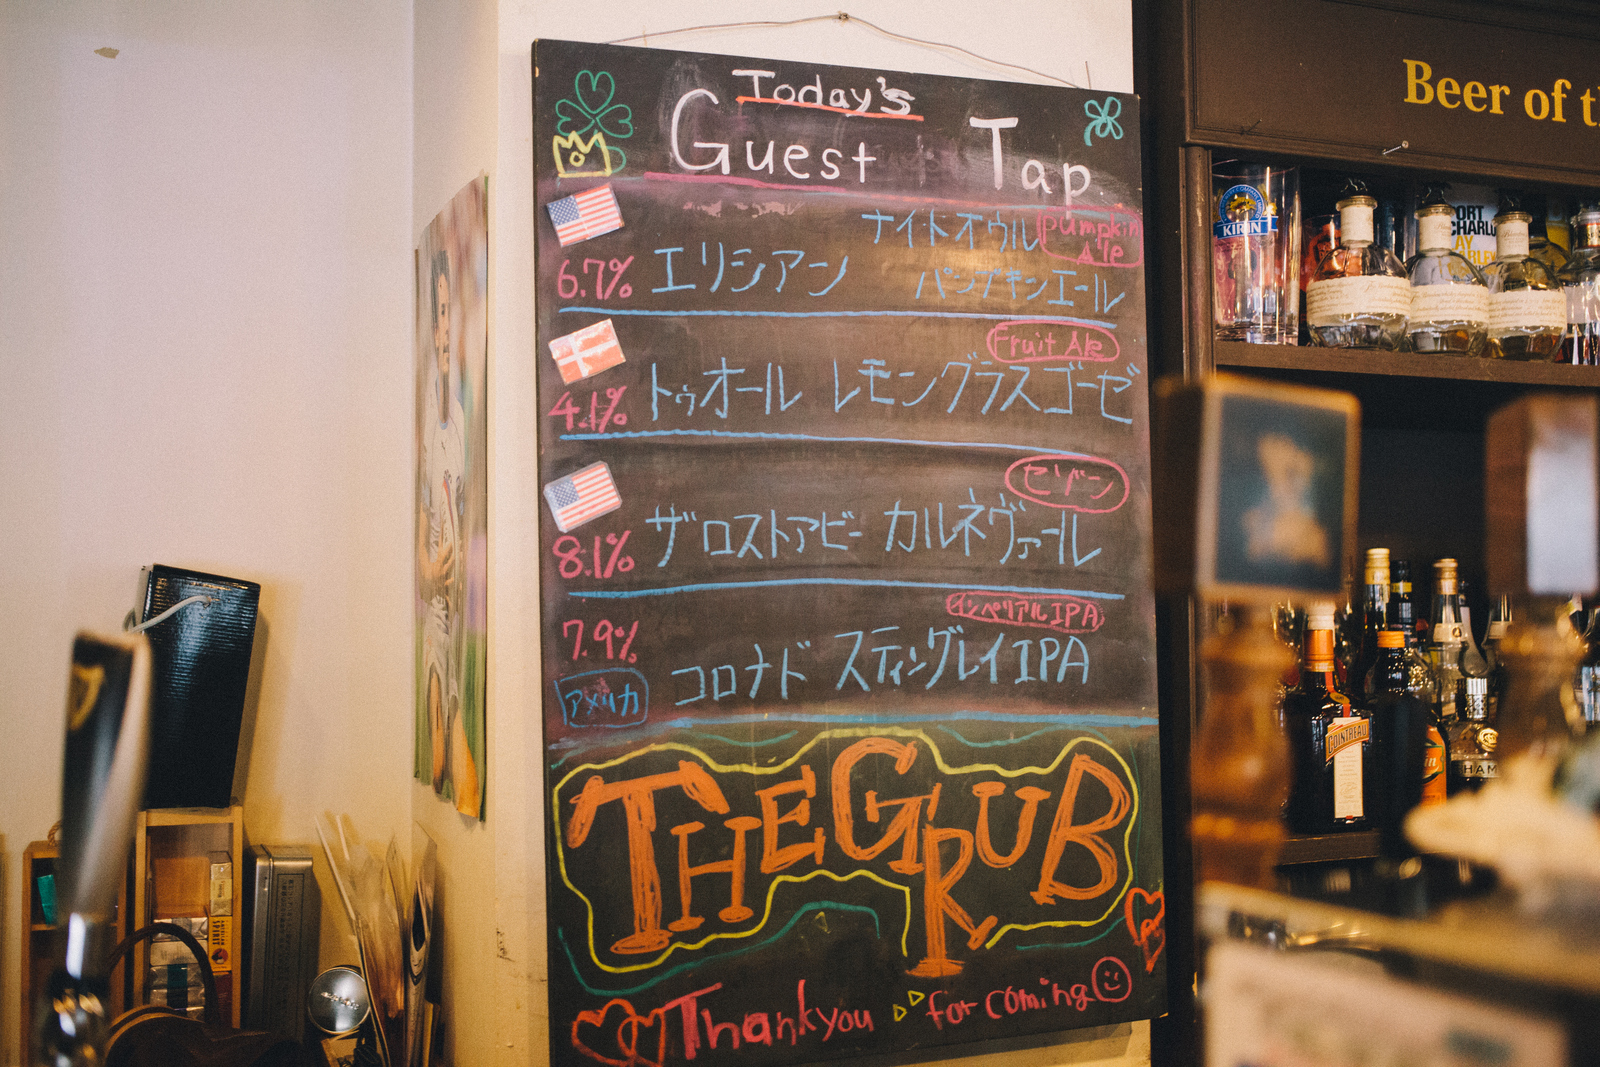 Today's
Guest Tap
ナイトオウル pumpkin Ale
6.7% エリシアン パンプキンエール
Fruit Ale
4.1% トゥオール レモングラスゴーゼ
セゾン
8.1% ザロストアビー カルネヴァール
インペリアルIPA
7.9% コロナド スティングレイIPA
アメリカ
THE GRUB
Thankyou for coming
Beer of t
KIRIN
COINTREAU
SPIRIT
HAM